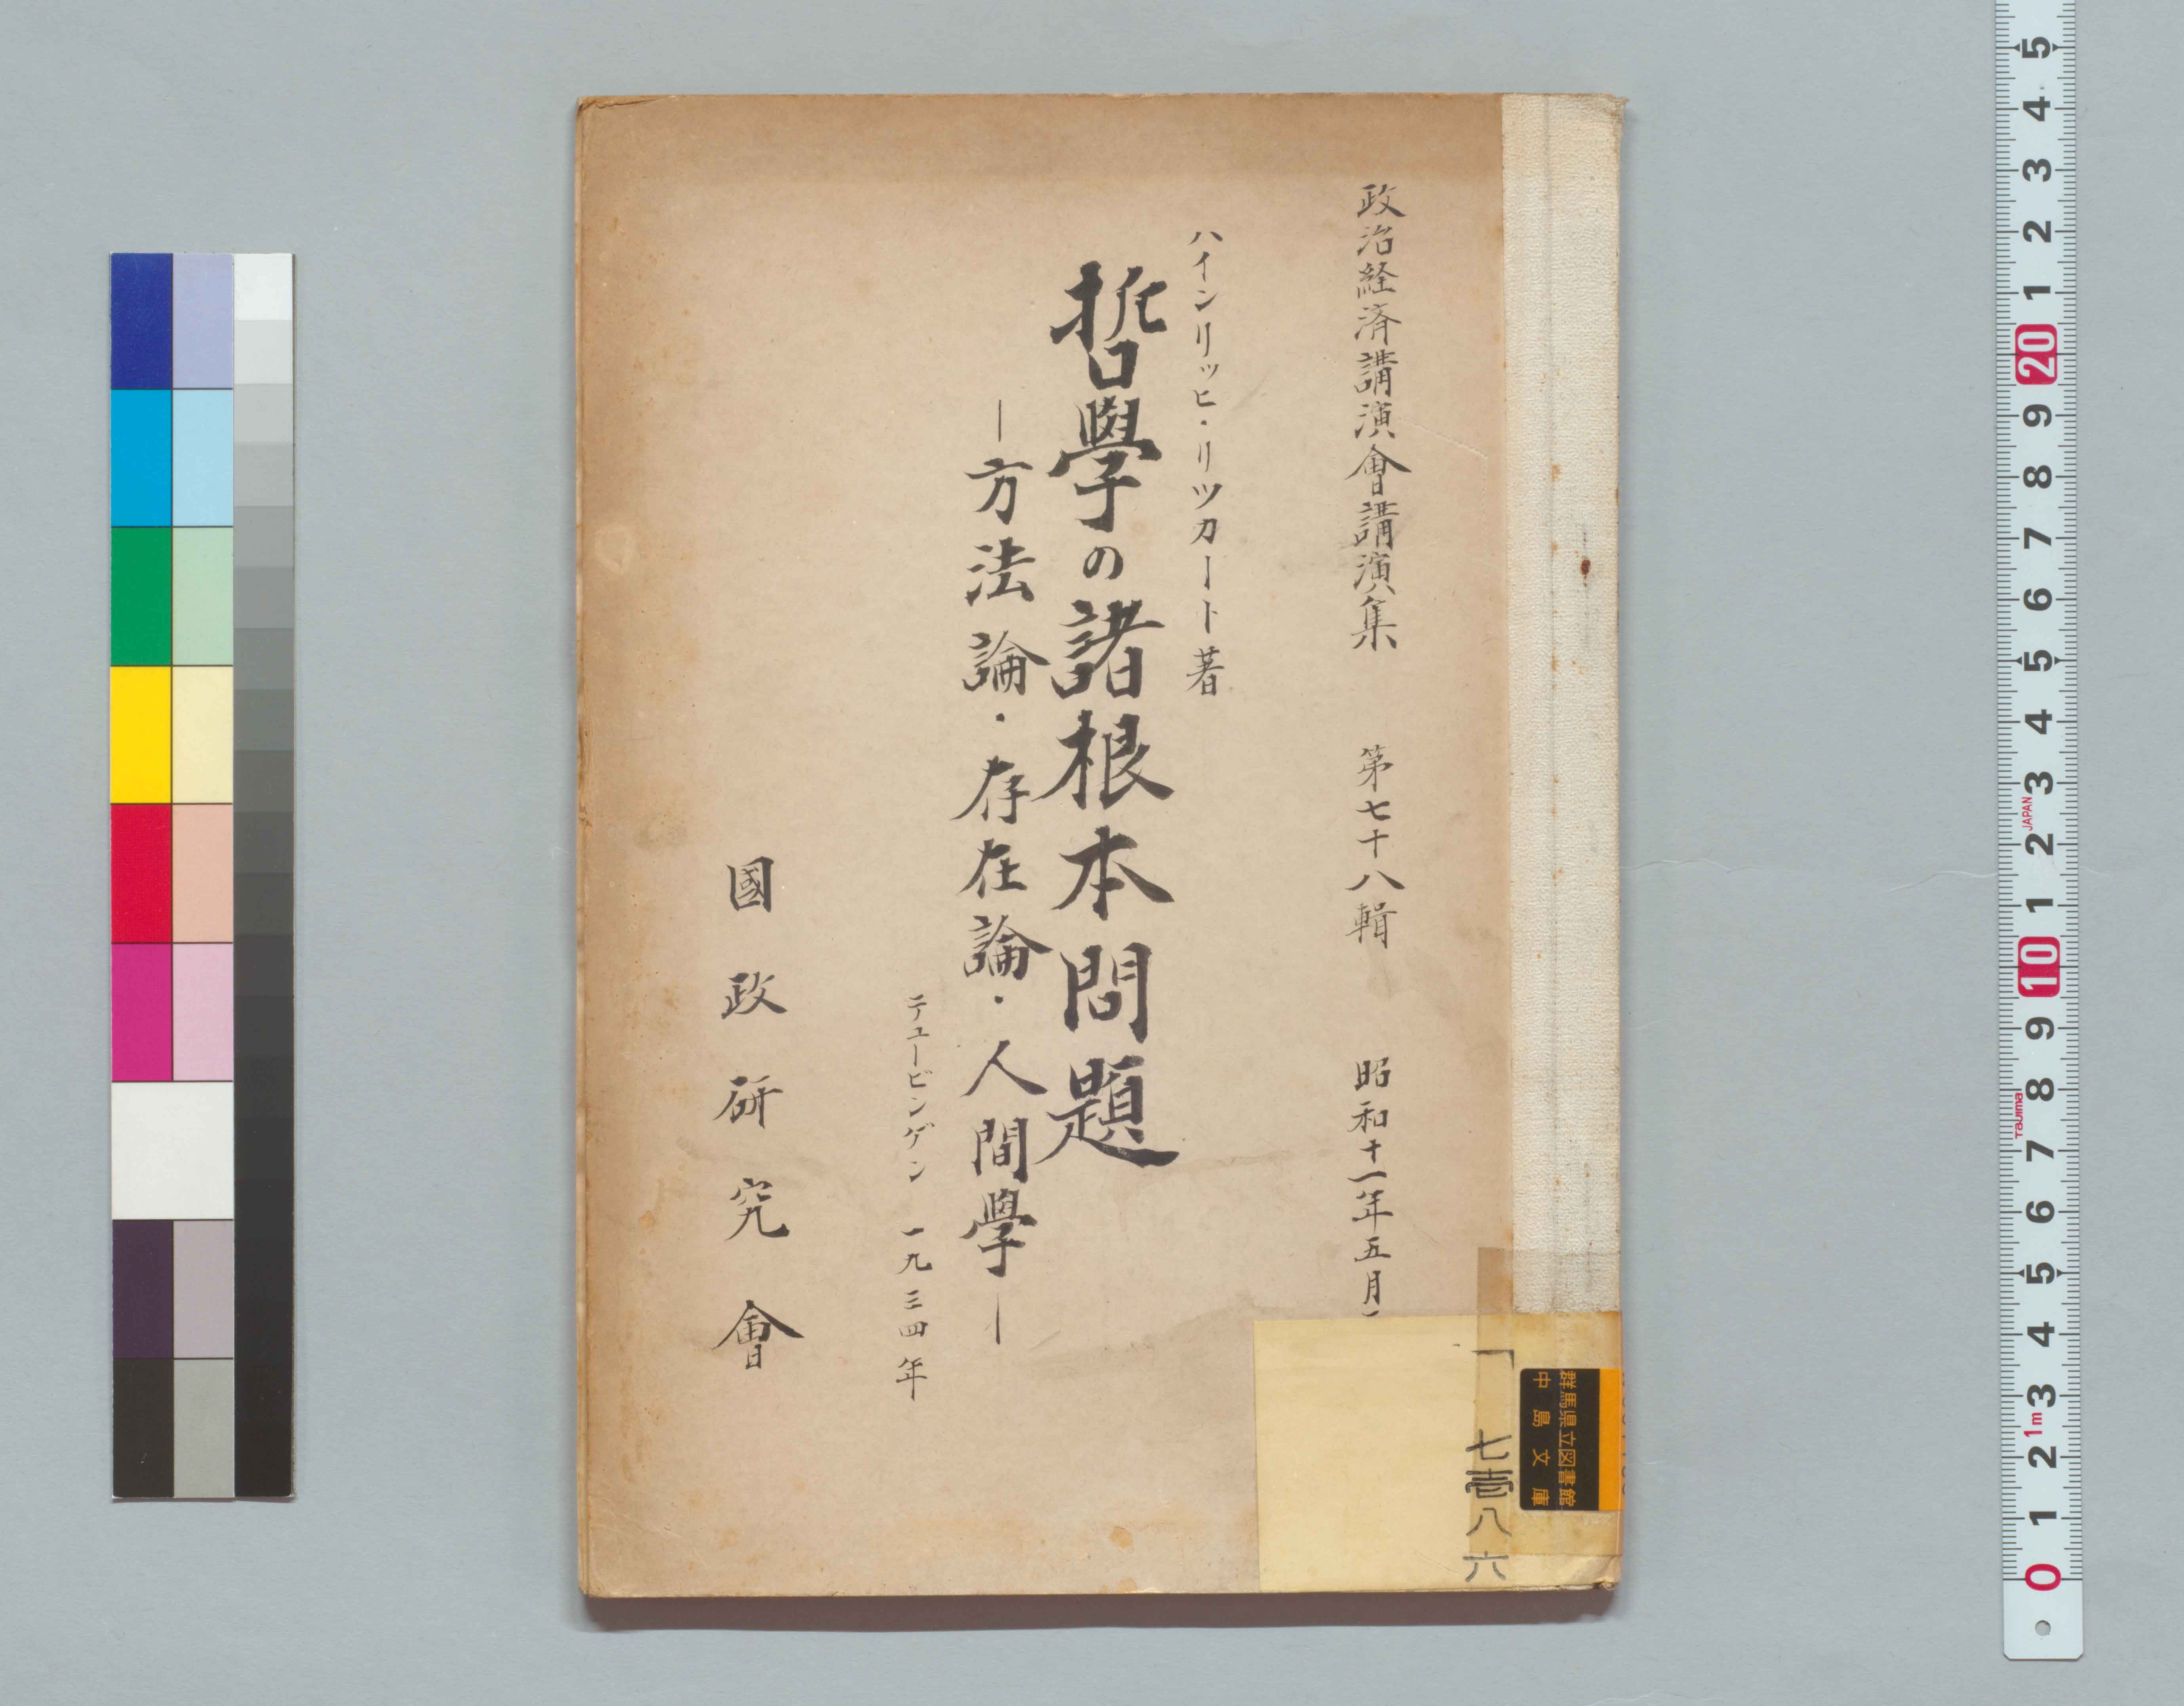 政治経済講演會講演集　第七十八輯　昭和十一年五月
ハインリッヒ・リツカート著
哲學の諸根本問題
―方法論・存在論・人間學―
テュービンゲン　一九三四年
國政研究會
七壱八六
群馬県立図書館
中島文庫
5
4
3
2
1
20
9
8
7
6
5
4
3
2
JAPAN
1
10
9
8
Tajima
7
6
5
4
3
1m
2
1
0